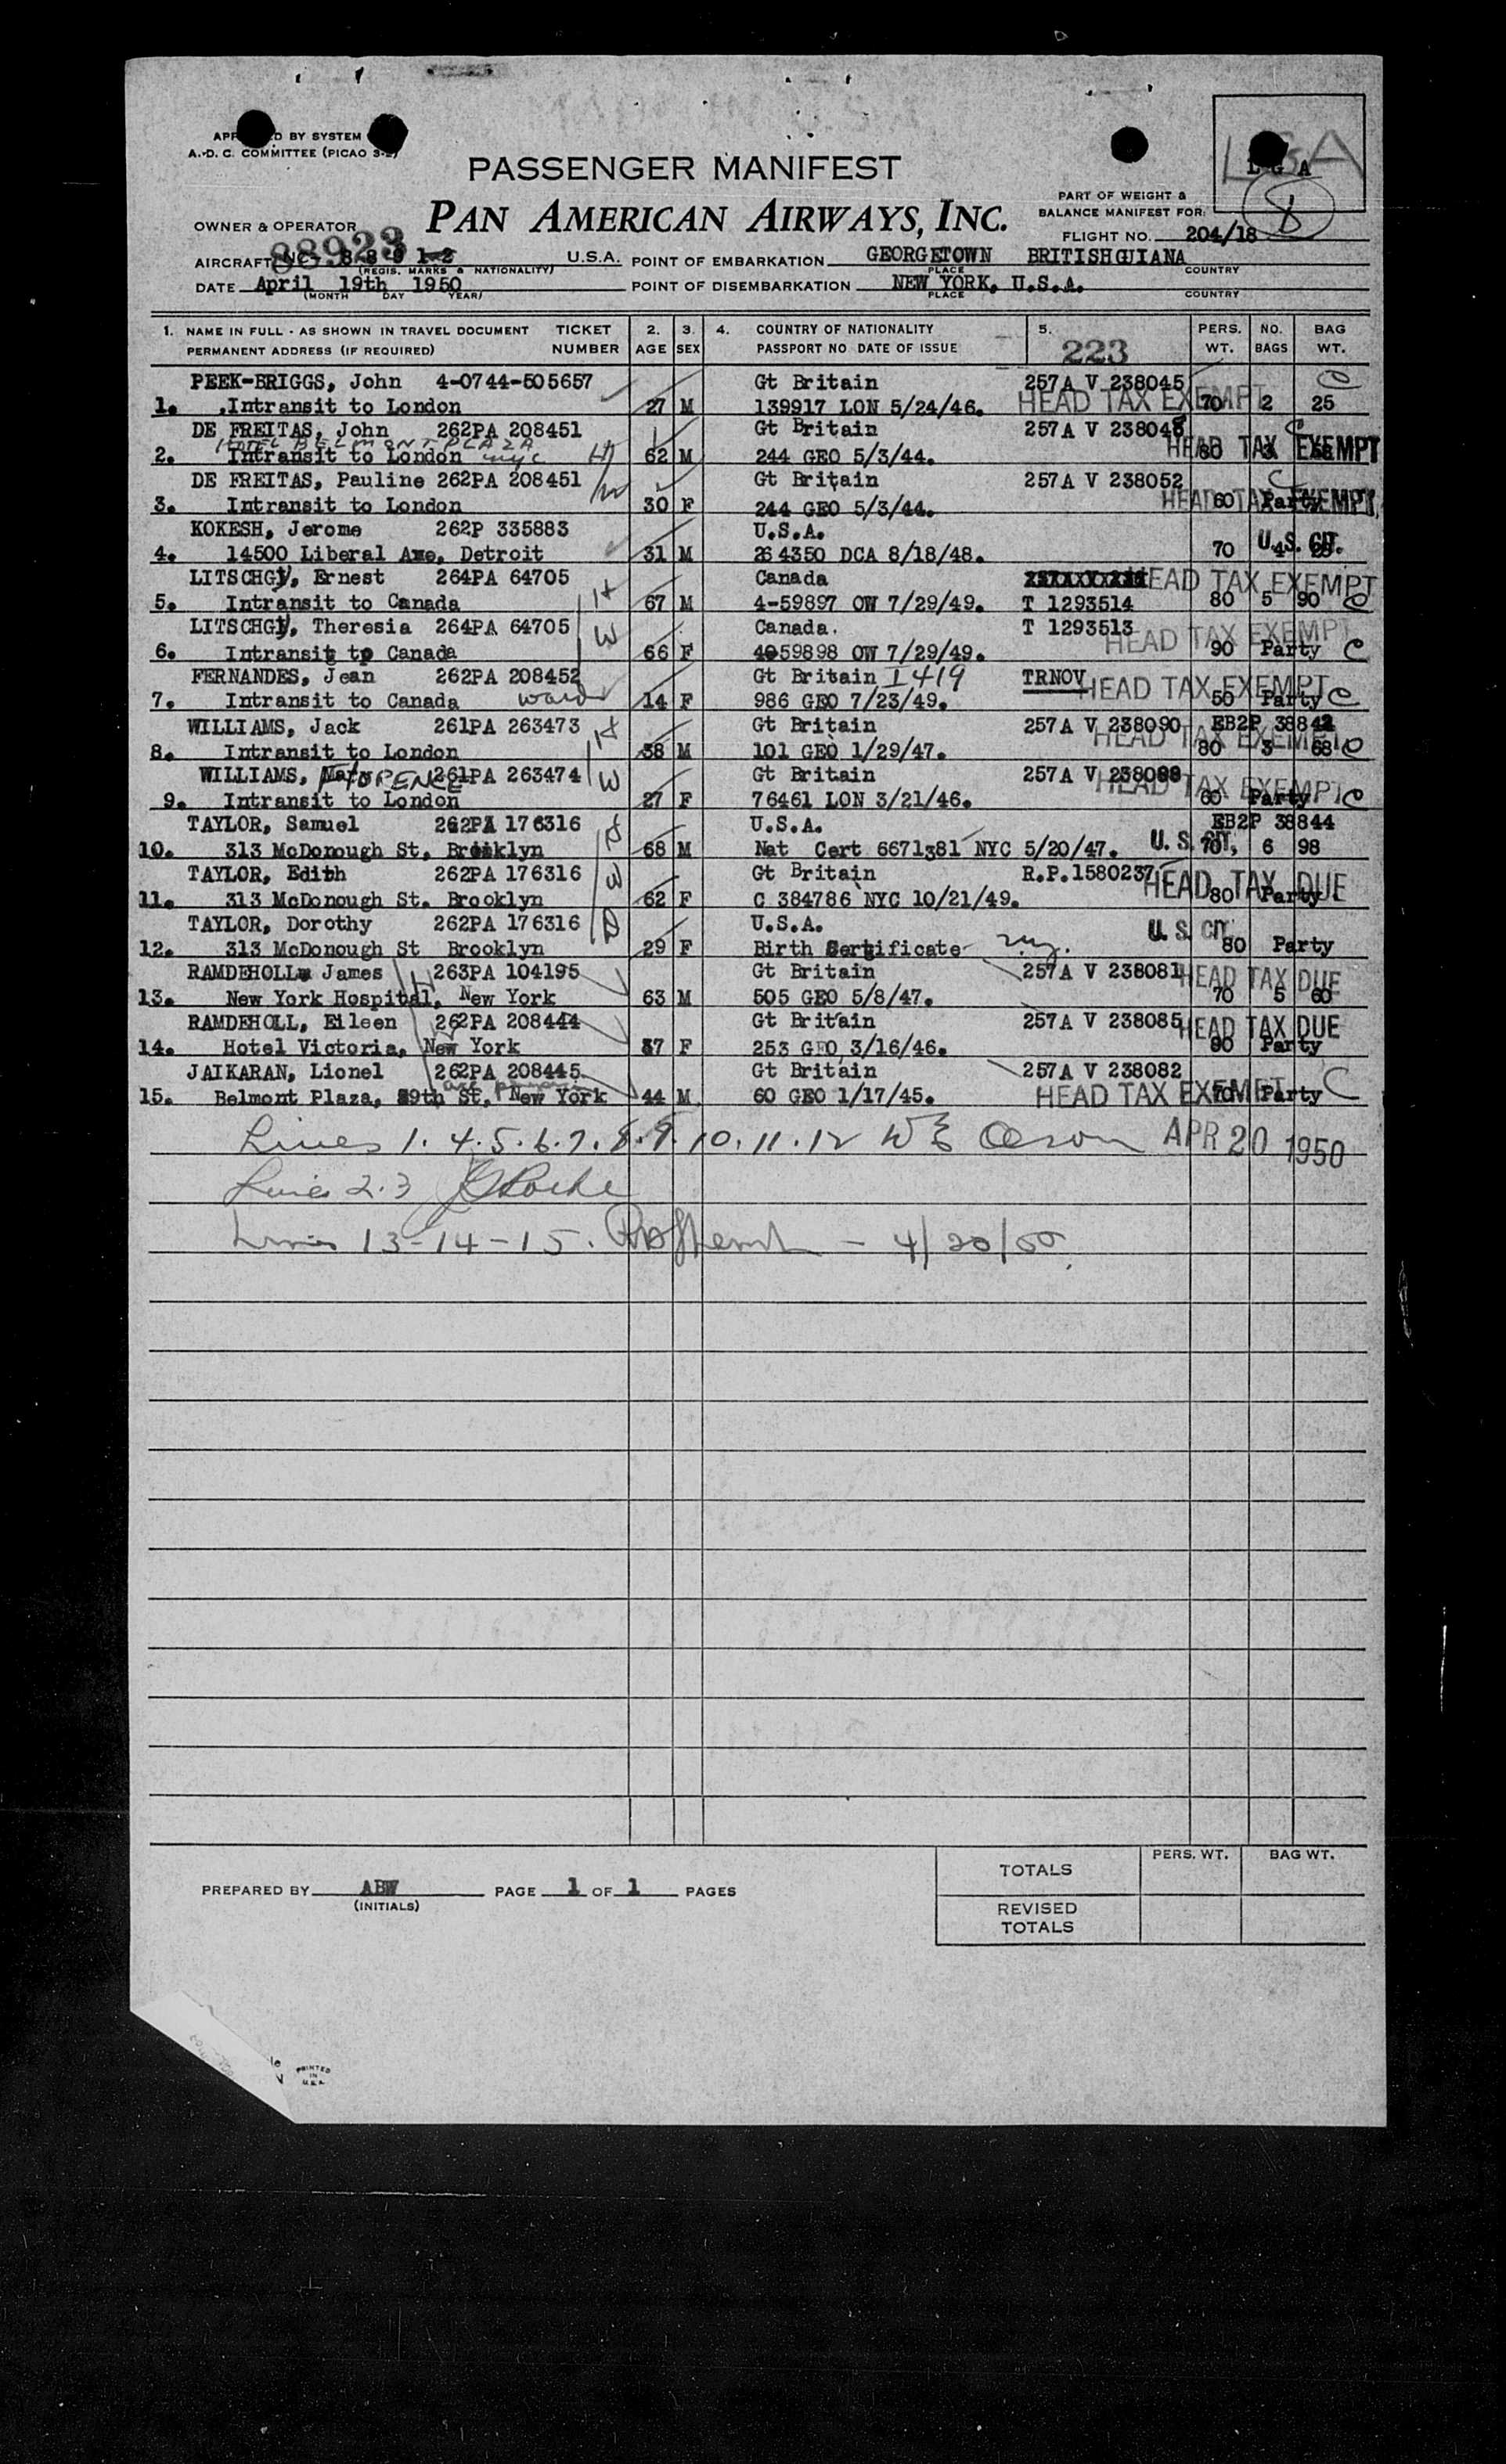 APP D BY SYSTEM
A.-D. C. COMMITTEE (PICAO 3-2)
LGA
L G A
8
PASSENGER MANIFEST
PAN AMERICAN AIRWAYS, INC.
PART OF WEIGHT &
BALANCE MANIFEST FOR:
OWNER & OPERATOR
FLIGHT NO. 204/18
88923
AIRCRAFT NC- 8 8 9 1 2 U.S.A. POINT OF EMBARKATION GEORGETOWN BRITISH GUIANA
(REGIS. MARKS & NATIONALITY) PLACE COUNTRY
DATE April 19th 1950 POINT OF DISEMBARKATION NEW YORK, U.S.A.
(MONTH DAY YEAR) PLACE COUNTRY
1. NAME IN FULL - AS SHOWN IN TRAVEL DOCUMENT TICKET 2. 3. 4. COUNTRY OF NATIONALITY 5. PERS. NO. BAG
PERMANENT ADDRESS (IF REQUIRED) NUMBER AGE SEX PASSPORT NO DATE OF ISSUE 223 WT. BAGS WT.
PEEK-BRIGGS, John 4-0744-505657 Gt Britain 257A V 238045 C
1. Intransit to London 27 M 139917 LON 5/24/46. HEAD TAX EXEMPT 70 2 25
DE FREITAS, John 262PA 208451 Gt Britain 257A V 238048 C
HOTEL BELMONT PLAZA NYC
2. Intransit to London H 62 M 244 GEO 5/3/44. HEAD TAX EXEMPT 80
DE FREITAS, Pauline 262PA 208451 Gt Britain 257A V 238052 C
3. Intransit to London W 30 F 244 GEO 5/3/44. HEAD TAX EXEMPT 60 Party
KOKESH, Jerome 262P 335883 U.S.A.
4. 14500 Liberal Ave, Detroit 31 M 26 4350 DCA 8/18/48. 70 U.S. CIT.
LITSCHGY, Ernest 264PA 64705 Canada HEAD TAX EXEMPT
5. Intransit to Canada H 67 M 4-59897 OW 7/29/49. T 1293514 80 5 90 C
LITSCHGY, Theresia 264PA 64705 Canada. T 1293513 HEAD TAX EXEMPT
6. Intransit to Canada W 66 F 4059898 OW 7/29/49. 90 Party C
FERNANDES, Jean 262PA 208452 Gt Britain I419 TRNOV HEAD TAX EXEMPT
7. Intransit to Canada ward 14 F 986 GEO 7/23/49. 50 Party C
WILLIAMS, Jack 261PA 263473 Gt Britain 257A V 238090 EB2P 38842
8. Intransit to London H 38 M 101 GEO 1/29/47. HEAD TAX EXEMPT 80 3 68 C
WILLIAMS, 261PA 263474 Gt Britain 257A V 238088 HEAD TAX EXEMPT
9. Intransit to London W 27 F 76461 LON 3/21/46. 60 Party C
TAYLOR, Samuel 262PA 176316 U.S.A. EB2P 38844
10. 313 McDonough St, Brooklyn H 68 M Nat Cert 6671381 NYC 5/20/47. U.S. CIT. 70 6 98
TAYLOR, Edith 262PA 176316 Gt Britain R.P.1580237 HEAD TAX DUE
11. 313 McDonough St. Brooklyn W 62 F C 384786 NYC 10/21/49. 80 Party
TAYLOR, Dorothy 262PA 176316 U.S.A. U.S. CIT.
12. 313 McDonough St Brooklyn D 29 F Birth Sertificate 80 Party
RAMDEHOLL James 263PA 104195 Gt Britain 257A V 238081 HEAD TAX DUE
13. New York Hospital, New York H 63 M 505 GEO 5/8/47. 70 5 60
RAMDEHOLL, Eileen 262PA 208444 Gt Britain 257A V 238085 HEAD TAX DUE
14. Hotel Victoria, New York W 37 F 253 GEO 3/16/46. 90 Party
JAIKARAN, Lionel 262PA 208445 Gt Britain 257A V 238082 C
15. Belmont Plaza, 49th St, New York 44 M 60 GEO 1/17/45. HEAD TAX EXEMPT 70 Party
Lines 1. 4. 5. 6. 7. 8. 9. 10. 11. 12 W E APR 20 1950
Lines 2. 3
Lines 13-14-15. - 4/20/50
TOTALS PERS. WT. BAG WT.
PREPARED BY ABW PAGE 1 OF 1 PAGES
(INITIALS)
REVISED
TOTALS
PRINTED
IN
U.S.A.